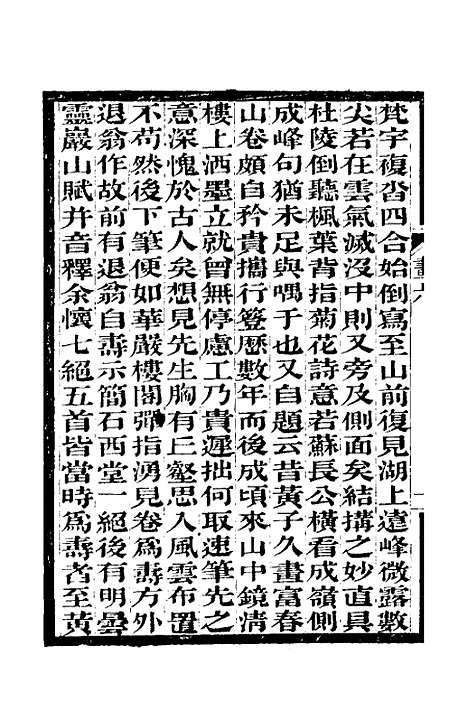 梵宇複沓四合始倒寫至山前復見湖上遠峰微露數
尖若在雲氣滅沒中則又旁及側面矣結搆之妙直具
杜陵倒聽楓葉背指菊花詩意若蘇長公橫看成嶺側
成峰句猶未足與喁于也又自題云昔黃子久畫富春
山卷頗自矜貴攜行篋歷數年而後成頃來山中鏡淸
樓上洒墨立就曾無停慮工乃貴遲拙何取速筆先之
意深愧於古人矣想見先生胸有丘壑思入風雲布置
不苟然後下筆便如華嚴樓閣彈指湧見卷爲壽方外
退翁作故前有退翁自壽示簡石西堂一絕後有明曇
靈巖山賦幷音釋余懷七絕五首皆當時爲壽者至黃
畫六